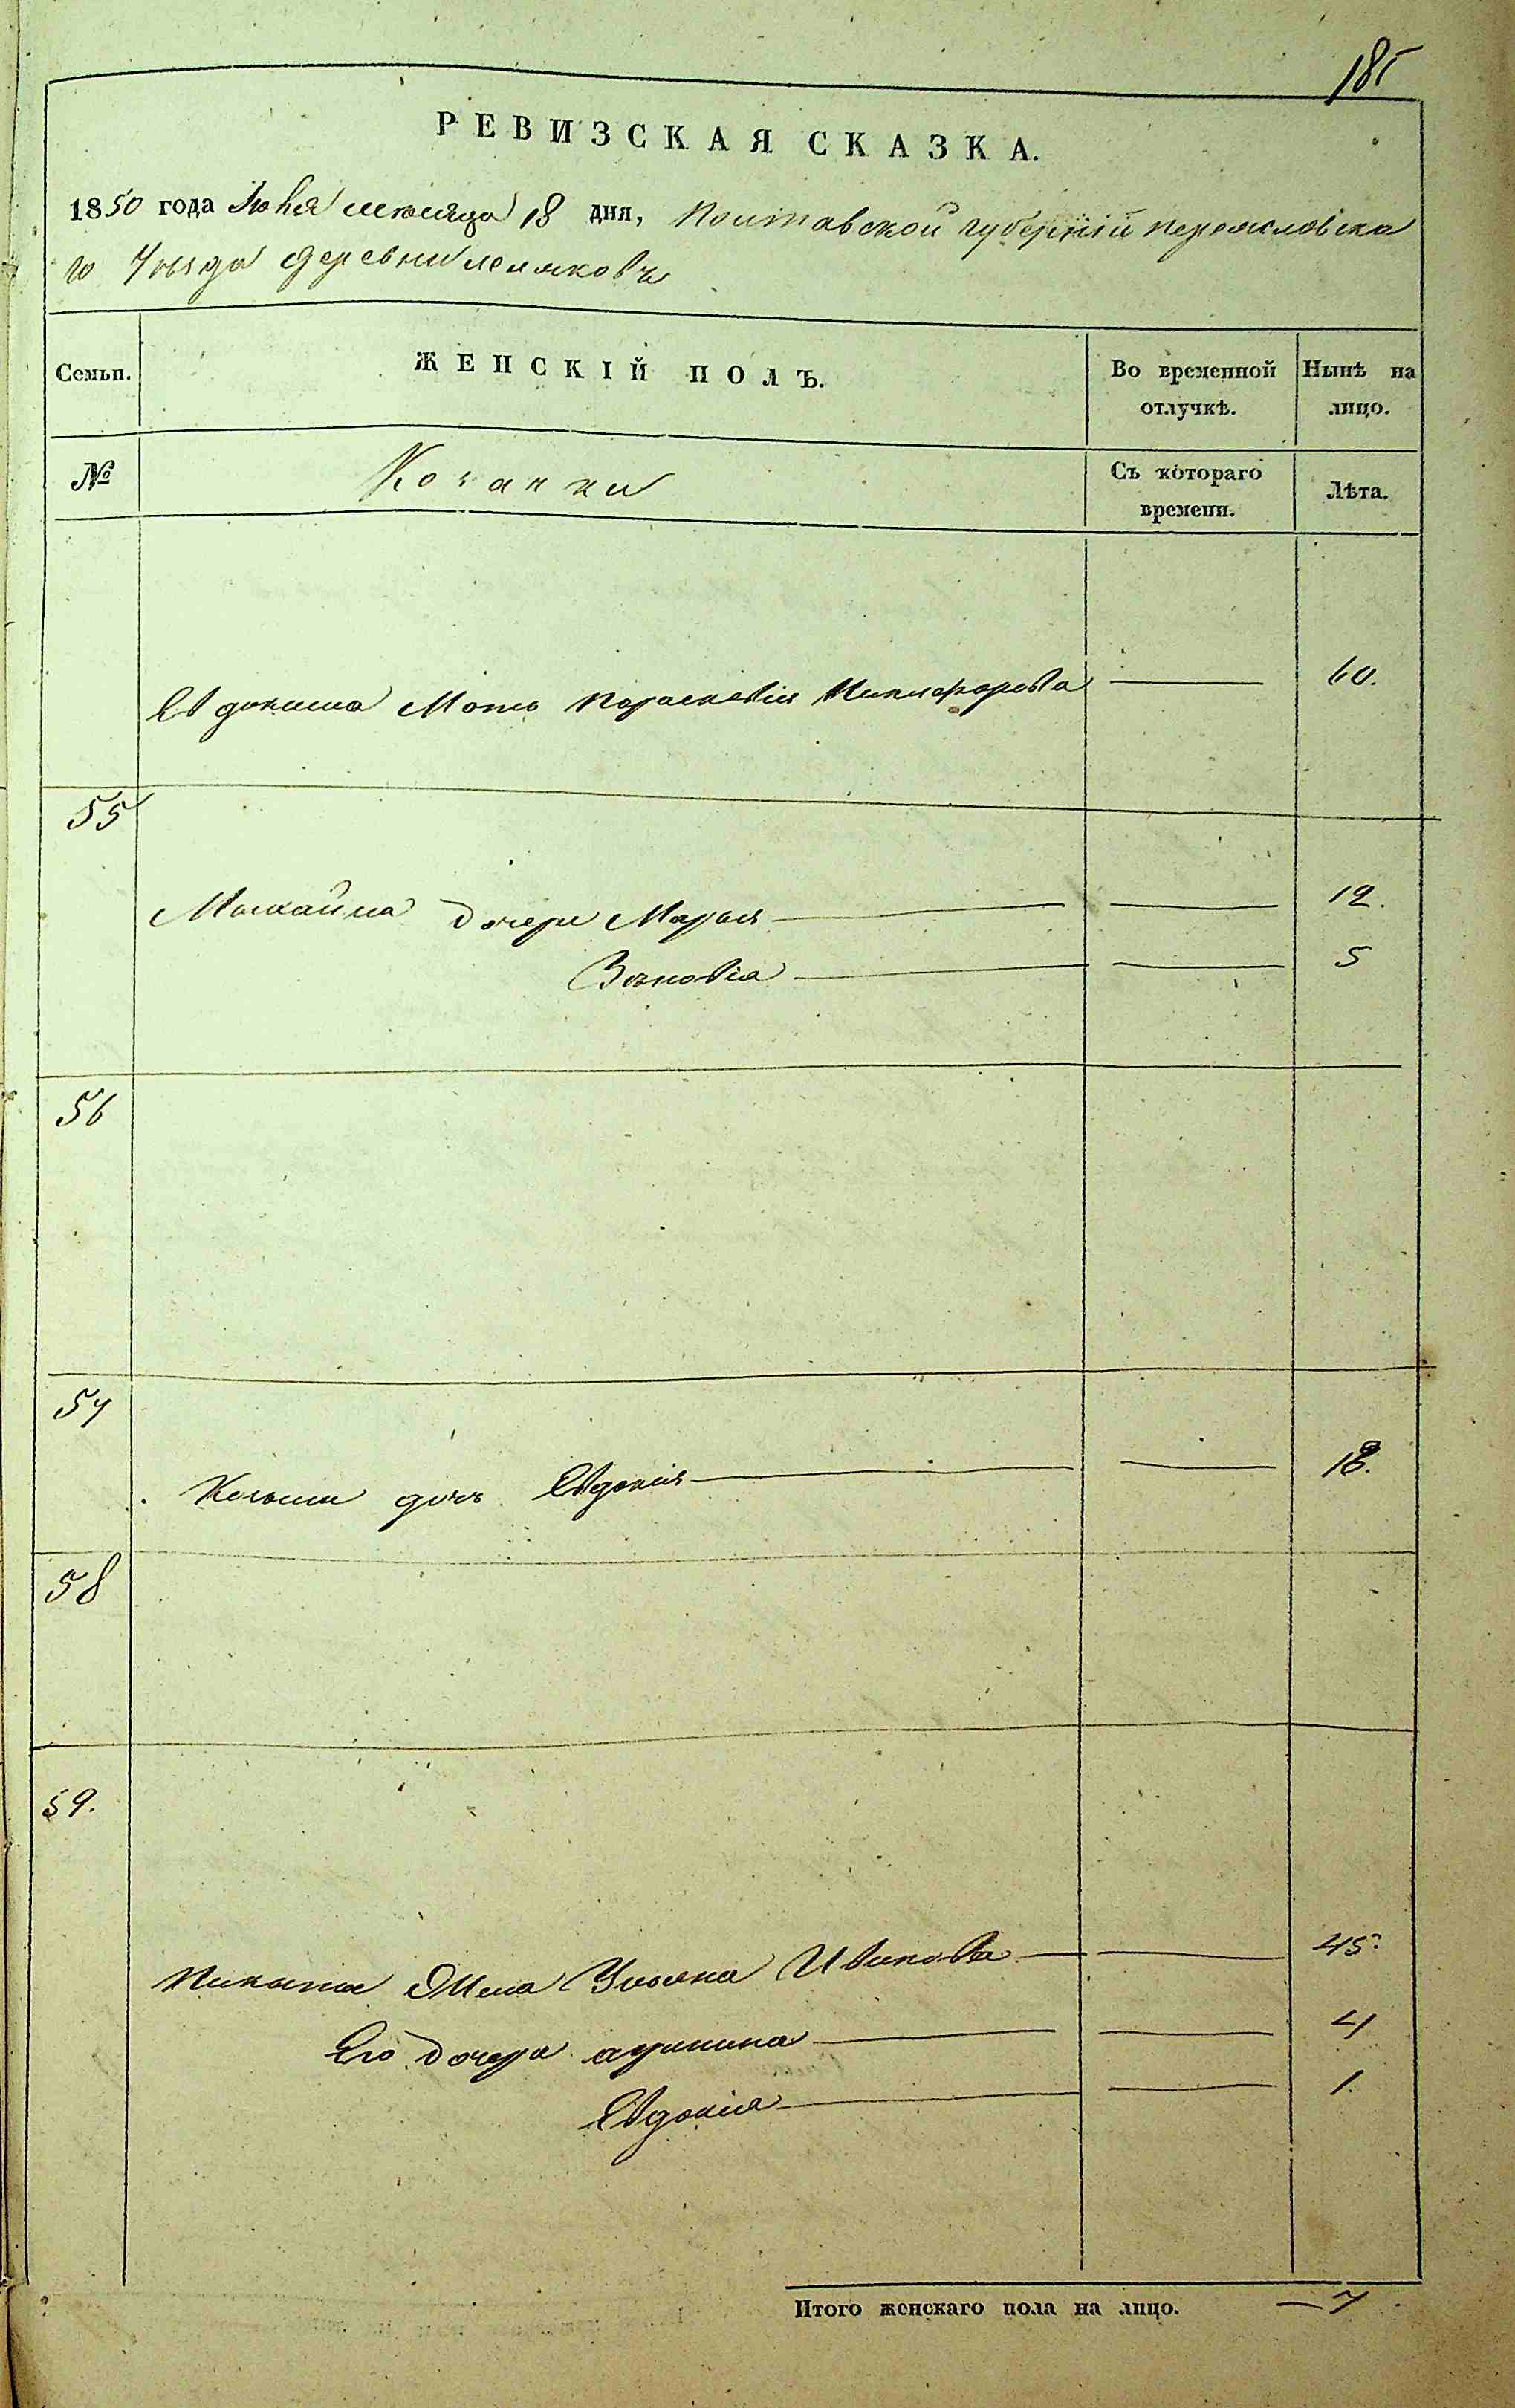 185
РЕВИЗСКАЯ СКАЗКА.
1850 года Іюня месяца 18 дня, Полтавской губерніи переясловска
го Уезда деревни лемяковъ
Семьи. ЖЕНСКІЙ ПОЛЪ. Во временной отлучкѣ. Нынѣ на лицо.
№ Козачки Съ котораго времени. Лѣта.
Евдокима Мать Параскевія Никифорова 60.
55
Михайла дочери Марья 12.
Зѣновія 5
56
57
Козьмы дочь Евдокія 18.
58
59.
Никиты Жена Ульяна Иванова 45.
Его дочери акилина 4
Евдокія 1.
Итого женскаго пола на лицо. 7